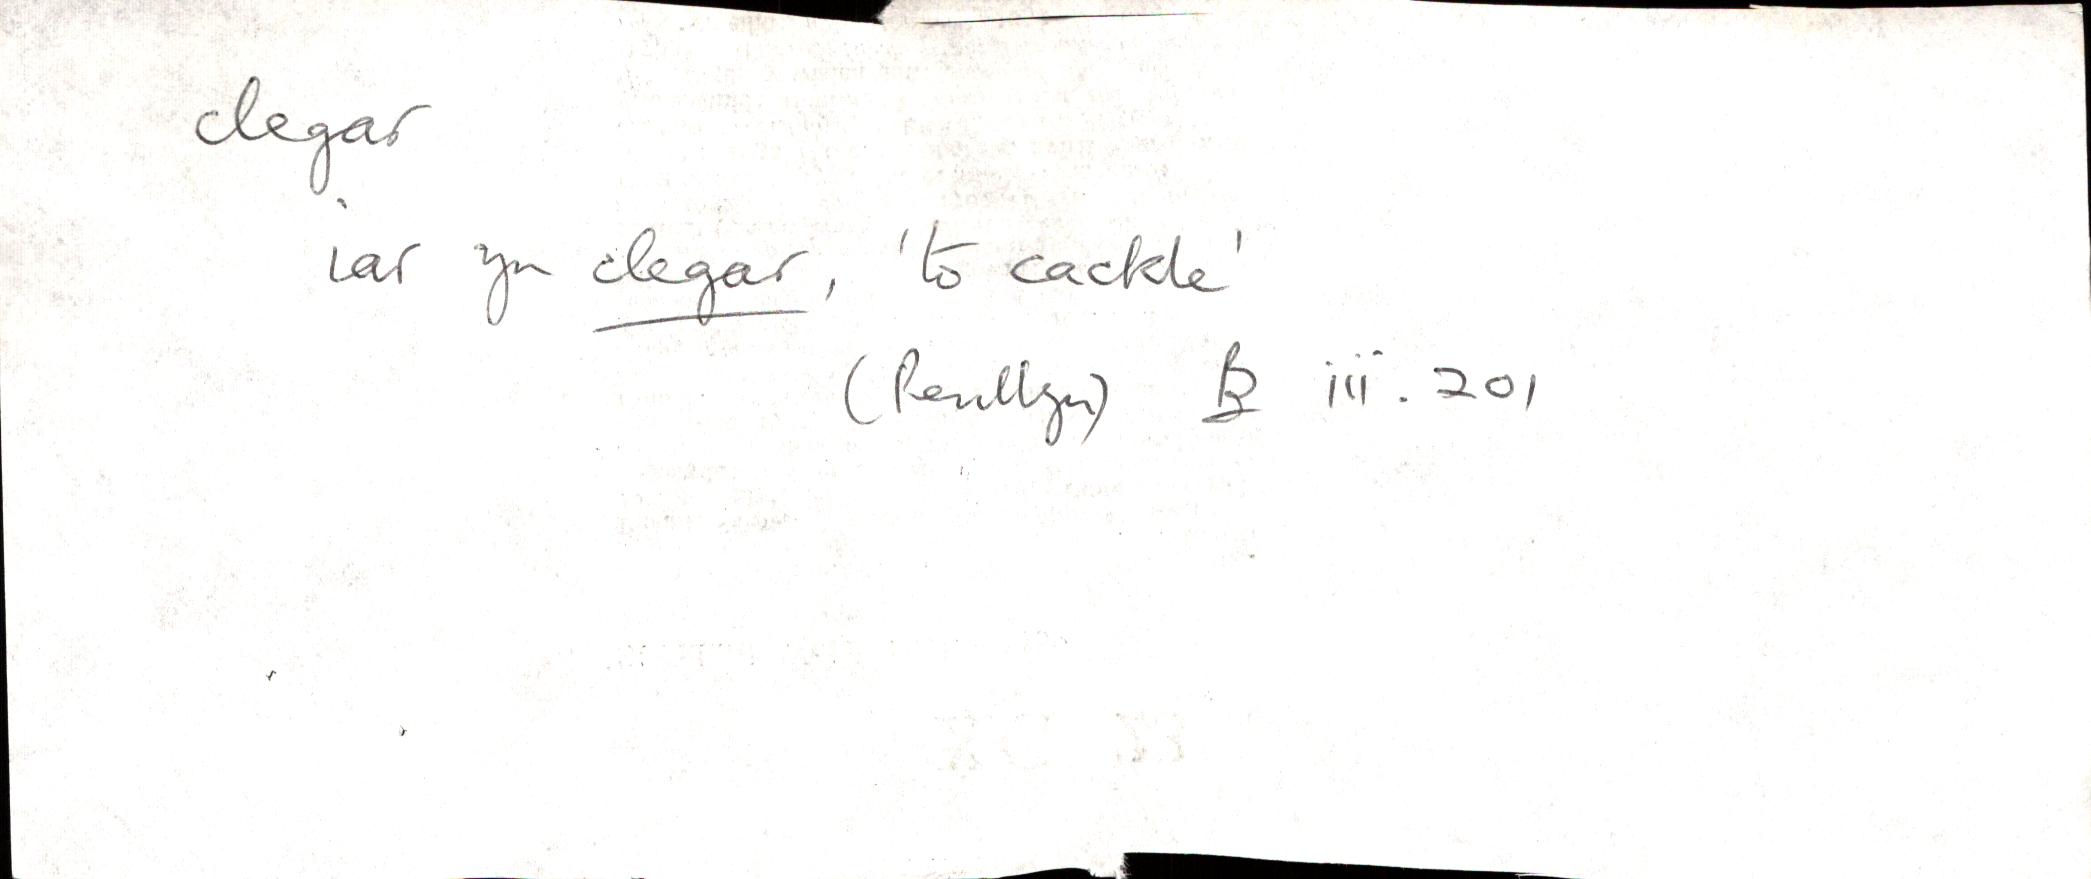 clegar
iar yn clegar, 'to cackle'
(Penllyn) B iii. 201